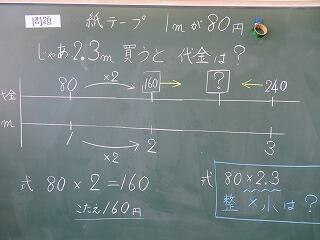 問題 紙テープ 1mが80円
じゃあ2.3m買うと代金は?
×2
代金 80 160 → ? ← 240
m 1 2 3
×2
式 80×2=160
こたえ160円
式 80×2.3
整×小は?